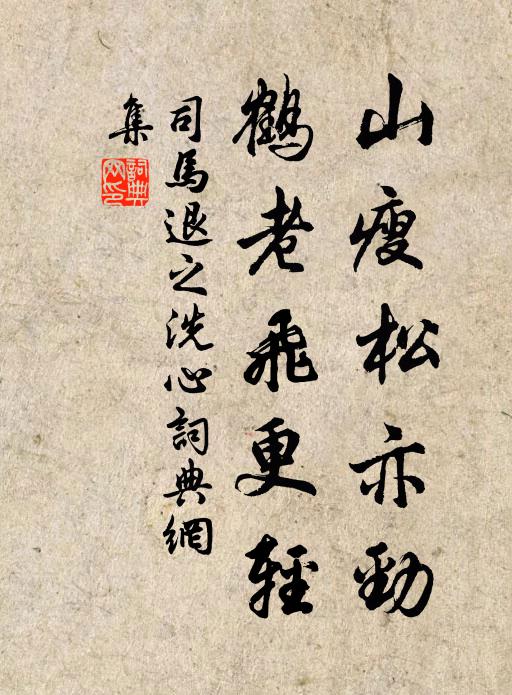 山瘦松亦勁
鶴老飛更輕
司馬退之洗心詞典網
集
詞典
网印